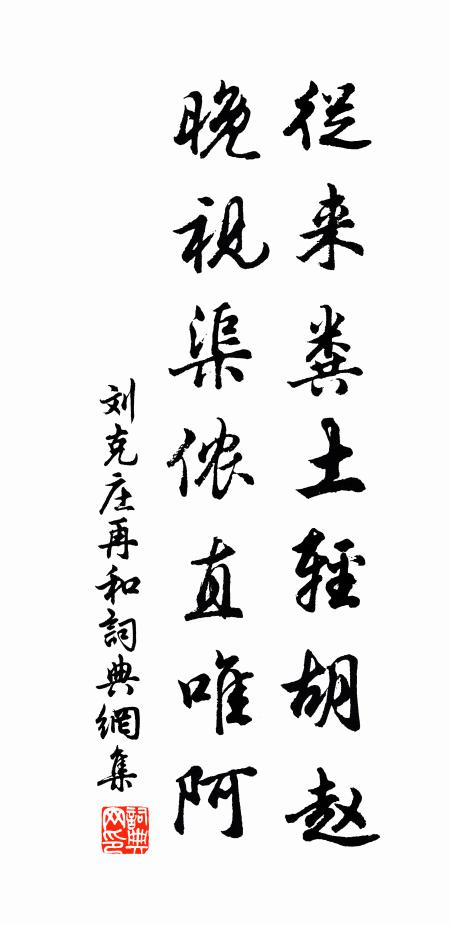 從来粪土輕胡赵
晚视渠侬直唯阿
刘克庄再和詞典網集
詞典网印